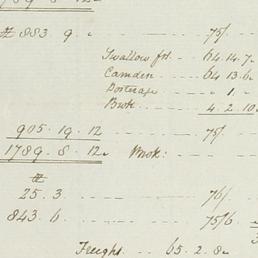 1789 . 8 . 12
883 9 " 75/
Swallow frt. 64.14.7
Camden 64 13.6
Porterage " 1. "
Brok 4.2.10
905 . 19 . 12 75/
1789 . 8 . 12 Brok:
25 . 3 76/
843 . 6 75/6
Freight 65.2.8